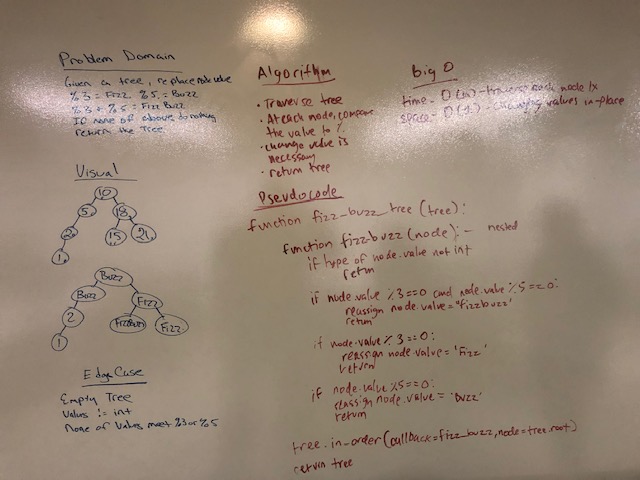 Problem Domain
Given a tree, replace node value
%3 = Fizz %5 = Buzz
%3 + %5 = FizzBuzz
If none of above do nothing
return the Tree
Visual
10
5 18
2 15 21
1
Buzz
Buzz Fizz
2 FizzBuzz Fizz
1
Edge Case
Empty Tree
Values != int
None of values meet %3 or %5
Algorithm
• Traverse tree
• At each node, compare
the value to %
• change value is
necessary
• return tree
big O
time - O(n) - traverse each node 1x
space - O(1) - changing values in-place
Pseudocode
function fizz_buzz_tree (tree):
function fizz_buzz (node): - nested
if type of node.value not int
return
if node.value %3==0 and node.value %5==0:
reassign node.value = 'fizzbuzz'
return
if node.value % 3==0:
reassign node.value = 'Fizz'
return
if node.value %5==0:
reassign node.value = 'buzz'
return
tree.in_order(callback=fizz_buzz, node=tree.root)
return tree